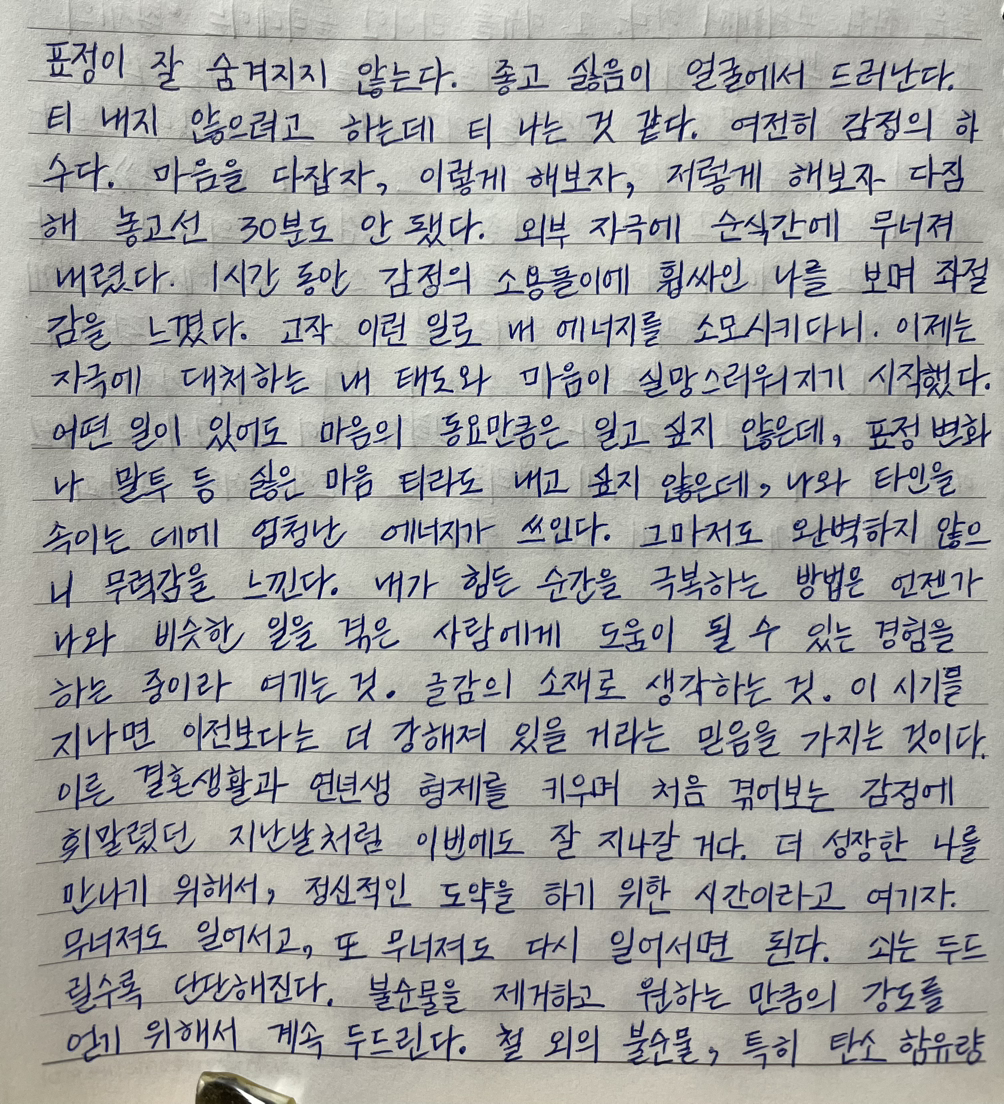 표정이 잘 숨겨지지 않는다. 좋고 싫음이 얼굴에서 드러난다.
티 내지 않으려고 하는데 티 나는 것 같다. 여전히 감정의 하
수다. 마음을 다잡자, 이렇게 해보자, 저렇게 해보자 다짐
해 놓고선 30분도 안 됐다. 외부 자극에 순식간에 무너져
내렸다. 1시간 동안 감정의 소용돌이에 휩싸인 나를 보며 좌절
감을 느꼈다. 고작 이런 일로 내 에너지를 소모시키다니. 이제는
자극에 대처하는 내 태도와 마음이 실망스러워지기 시작했다.
어떤 일이 있어도 마음의 동요만큼은 일고 싶지 않은데, 표정 변화
나 말투 등 싫은 마음 티라도 내고 싶지 않은데, 나와 타인을
속이는 데에 엄청난 에너지가 쓰인다. 그마저도 완벽하지 않으
니 무력감을 느낀다. 내가 힘든 순간을 극복하는 방법은 언젠가
나와 비슷한 일을 겪은 사람에게 도움이 될 수 있는 경험을
하는 중이라 여기는 것. 글감의 소재로 생각하는 것. 이 시기를
지나면 이전보다는 더 강해져 있을 거라는 믿음을 가지는 것이다.
이른 결혼생활과 연년생 형제를 키우며 처음 겪어보는 감정에
휘말렸던 지난날처럼 이번에도 잘 지나갈 거다. 더 성장한 나를
만나기 위해서, 정신적인 도약을 하기 위한 시간이라고 여기자.
무너져도 일어서고, 또 무너져도 다시 일어서면 된다. 쇠는 두드
릴수록 단단해진다. 불순물을 제거하고 원하는 만큼의 강도를
얻기 위해서 계속 두드린다. 철 외의 불순물, 특히 탄소 함유량